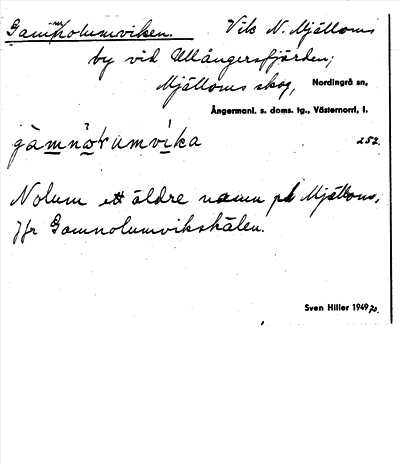 Gamnolumviken. Vik N. Mjälloms
by vid Ullångersfjorden;
Mjälloms skog, Nordingrå sn,
Ångermanl. s. doms. tg., Västernorrl. l.
gàmnọrumvika 252.
Nolum ett äldre namn på Mjällom,
Jfr Gamnolumvikskälen.
Sven Hiller 1949 70.